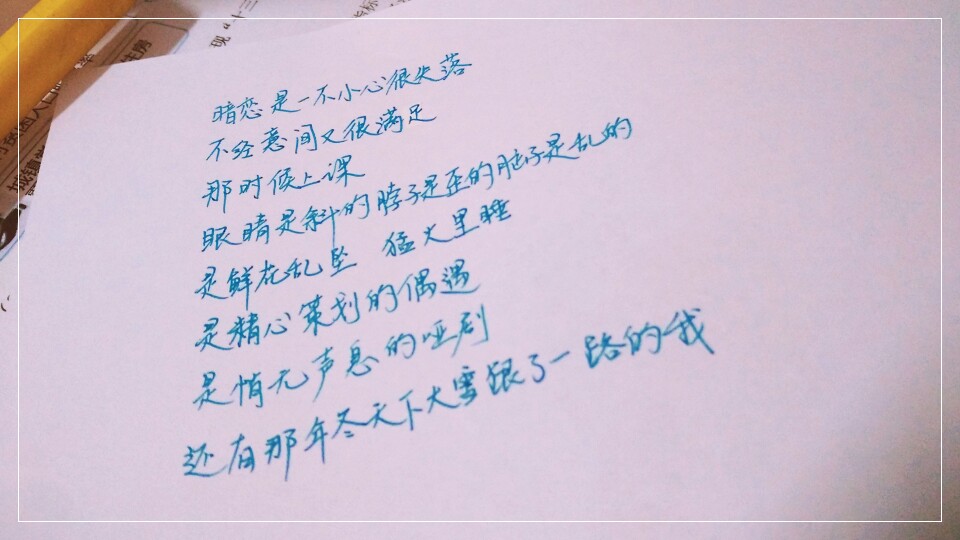 暗恋是一不小心很失落
不经意间又很满足
那时候上课
眼睛是斜的脖子是歪的脑子是乱的
是鲜花乱坠 猛火里睡
是精心策划的偶遇
是悄无声息的哑剧
还有那年冬天下大雪跟了一路的我